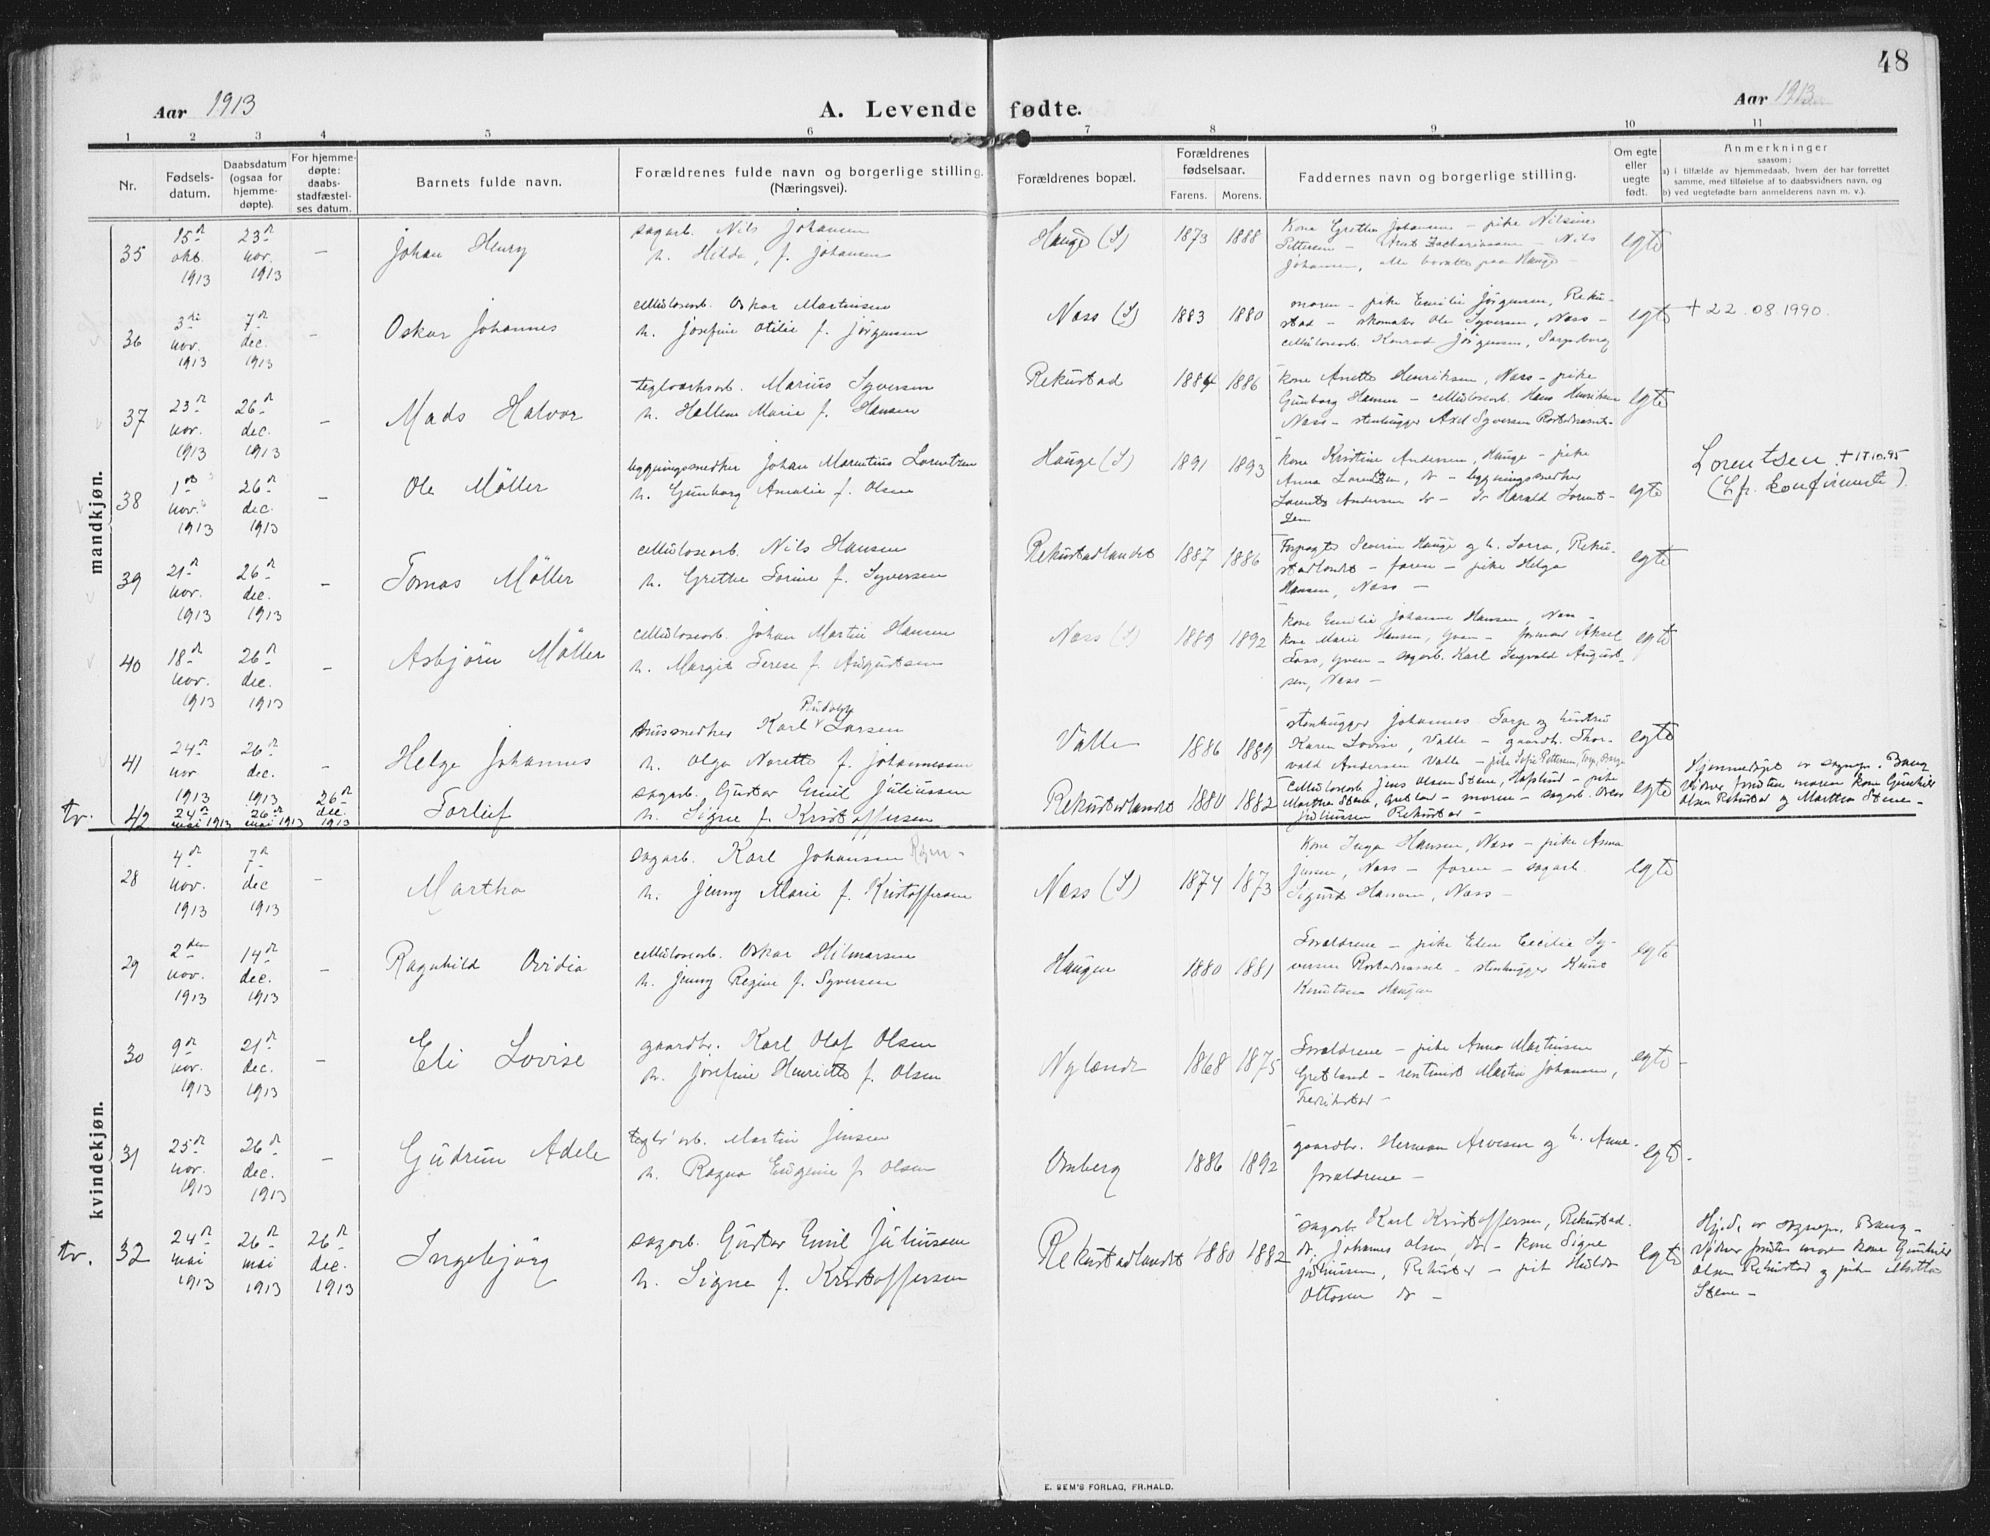 48
Aar 1913
A. Levende fødte.
Aar 1913
1 2 3 4 5 6 7 8 9 10 11
Nr.
Fødsels-
datum.
Daabsdatum
(ogsaa for
hjemme-
døpte).
For hjemme-
døpte:
daabs-
stadfæstel-
ses datum.
Barnets fulde navn.
Forældrenes fulde navn og borgerlige stilling.
(Næringsvei).
Forældrenes bopæl.
Forældrenes
fødselsaar.
Farens. Morens.
Faddernes navn og borgerlige stilling.
Om egte
eller
uegte
født.
Anmerkninger
saasom:
a) i tilfælde av hjemmedaab, hvem der har forrettet
samme, med tilføielse af to daabsvidners navn, og
b) ved uegtefødte barn anmelderens navn m. v.).
mandkjøn.
35
15de okt. 1913
23de nov. 1913
–
Johan Henry
sagarb. Nils Johansen
h. Hilda, f. Johansen
Hauge (S)
1873 1888
Kone Grethe Johansen – pike Nilsine
Pettersen – Arnt Zachariassen – Nils
Johansen, alle bosatte paa Hauge
egte
36
3die nov. 1913
7de dec. 1913
–
Oskar Johannes
cellulosearb. Oskar Martinsen
h. Josefine Otilie f. Jörgensen
Næss (S)
1883 1880
moren – pike Emilie Jörgensen, Reku-
stad – skomaker Ole Syversen, Næss –
cellulosearb. Konrad Jörgensen, Sarpsborg
egte
+ 22.08.1990.
37
23de nov. 1913
26de dec. 1913
–
Mads Halvor
teglverksarb. Marius Syversen
h. Hallene Marie f. Hansen
Rekustad
1884 1886
kone Anette Henriksen, Næss – pike
Gunborg Hansen – cellulosearb. Hans Henriksen
Næss – stenhugger Axel Syversen
egte
38
1ste nov. 1913
26de dec. 1913
–
Ole Möller
bygningssnedker Johan Marentius Lorentzen
h. Gunborg Amalie f. Olsen
Hauge (S)
1891 1893
kone Kristine Andersen, Hauge – pike
Anna Lorentzen, do – bygningssnedker
Lorentz Andersen do – do Harald Lorent-
zen
egte
Lorentsen. + 17.10.95
(Lfr. konfirmerte).
39
21de nov. 1913
26de dec. 1913
–
Tomas Möller
cellulosearb. Nils Hansen
h. Grethe Torine f. Syversen
Rekustadlandet
1887 1886
Forpagter Severin Hauge og h. Lorra, Reku-
stadlandet – faren – pike Helga
Hansen, Næss –
egte
40
18de nov. 1913
26de dec. 1913
–
Asbjörn Möller
cellulosearb. Johan Martin Hansen
h. Margit Terese f. Augustsen
Næss (S)
1889 1892
kone Emilie Johanne Hansen, Næss –
kone Marie Hansen, Gren – formand Aksel
Foss, Gren – sagarb. Karl Ingvald August-
sen, Næss –
egte
41
24de nov 1913
26de dec. 1913
–
Helge Johannes
Rudolph
hussnedker Karl Larsen
h. Olga Narette f. Johannessen
Valle
1886 1889
stenhugger Johannes Torp og hustru
Karen Lovise, Valle – gaardb. Thor-
vald Andersen Valle – pike Sofie Pettersen, Torp, Borge
egte
tv. 42
24de mai 1913
26de mai 1913
26de dec. 1913
Torleif
sagarb. Gustav Emil Juliussen
h. Signe f. Kristoffersen
Rekustadlandet
1880 1882
cellulosearb. Jens Olsen Stene, Hafslund – pike
Martha Stene, Gretland – moren – sagarb. Oscar
Juliussen Rekustad –
egte
Hjemmedöpt av sognepr. Bang
vidner foruten moren kone Gunhild
Olsen Rekustad og Martha Stene –
kvindekjøn.
28
4de nov. 1913
7de dec 1913
–
Martha
sagarb. Karl Johansen
h. Jenny Marie f. Kristoffersen
Næss (S)
1874 1873
Kone Inga Hansen, Næss – pike Anna
Jensen, Næss – faren – sagarb.
Sigurd Hansen, Næss –
egte
29
2den nov. 1913
14de dec. 1913
–
Ragnhild Ovidia
cellulosearb. Oskar Hilmarsen
h. Jenny Regine f. Syversen
Haugen
1880 1881
Forældrene – pike Elen Cecilie Sy-
versen – stenhugger Knut
Knutsen Haugen
egte
30
9de nov. 1913
21de dec. 1913
–
Eli Lovise
gaardbr. Karl Olaf Olsen
h. Josefine Henriette f. Olsen
Nylænde
1868 1875
Forældrene – pike Anna Martinsen
Gretland – rentenist Martin Johansen,
Fredrikstad –
egte –
31
25de nov. 1913
26de dec. 1913
–
Gudrun Adele
teglv.arb. Martin Jensen
h. Ragna Eugenie f. Olsen
Omberg
1886 1892
gaardbr. Herman Arvesen og h. Anne.
forældrene –
egte –
tv. 32
24de mai 1913
26de mai 1913
26de dec. 1913
Ingebjörg
sagarb. Gustav Emil Juliussen
h. Signe f. Kristoffersen
Rekustadlandet
1880 1882
sagarb. Karl Kristoffersen, Rekustad.
do. Johannes Olsen, do – kone Signe
Juliussen, Rekustad – pike Hulda
Ottosen do –
egte
Hjed. av sognepr. Bang –
vidner foruten moren kone Gunhild
Olsen Rekustad og pike Martha
Stene –
E. SEM'S FORLAG, FR.HALD.